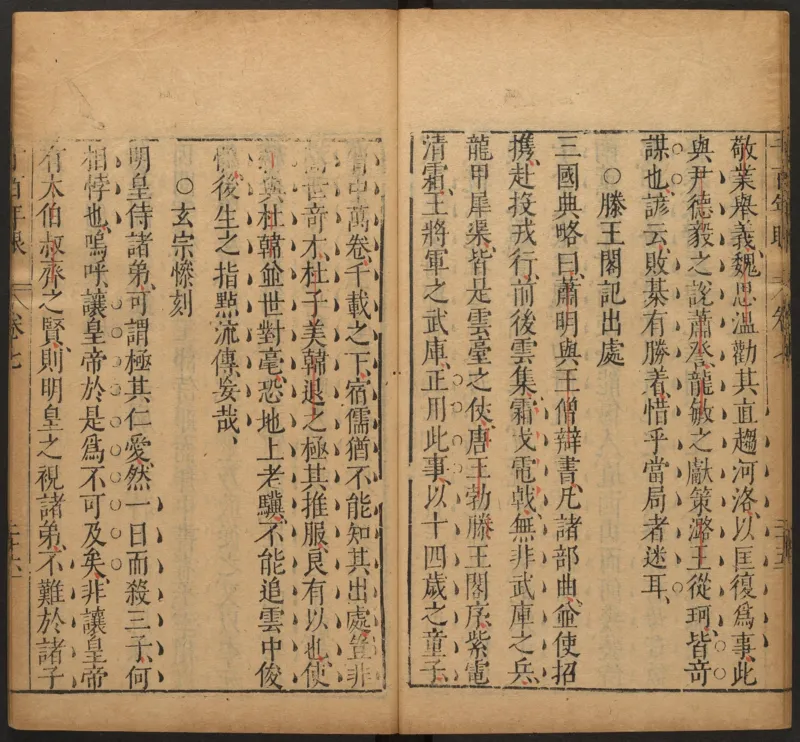 敬業舉義魏思溫勸其直趨河洛以匡復爲事此
與尹德毅之說蕭詧龍敏之獻策潞王從珂皆奇
謀也諺云敗棊有勝着惜乎當局者迷耳
○滕王閣記出處
三國典略曰蕭明與王僧辯書凡諸部曲並使招
攜赴投戎行前後雲集霜戈電戟無非武庫之兵
龍甲犀渠皆是雲臺之伏唐王勃滕王閣序紫電
清霜王將軍之武庫正用此事以十四歲之童子
胷中萬卷千載之下宿儒猶不能知其出處豈非
世奇才杜子美韓退之極其推服良有以也使
與杜韓並世對毫恐地上老驥不能追雲中俊
後生之指點流傳妄哉
○玄宗慘刻
明皇侍諸弟可謂極其仁愛然一日而殺三子何
相悖也嗚呼讓皇帝於是爲不可及矣非讓皇帝
有太伯叔齊之賢則明皇之視諸弟不難於諸子
卷七